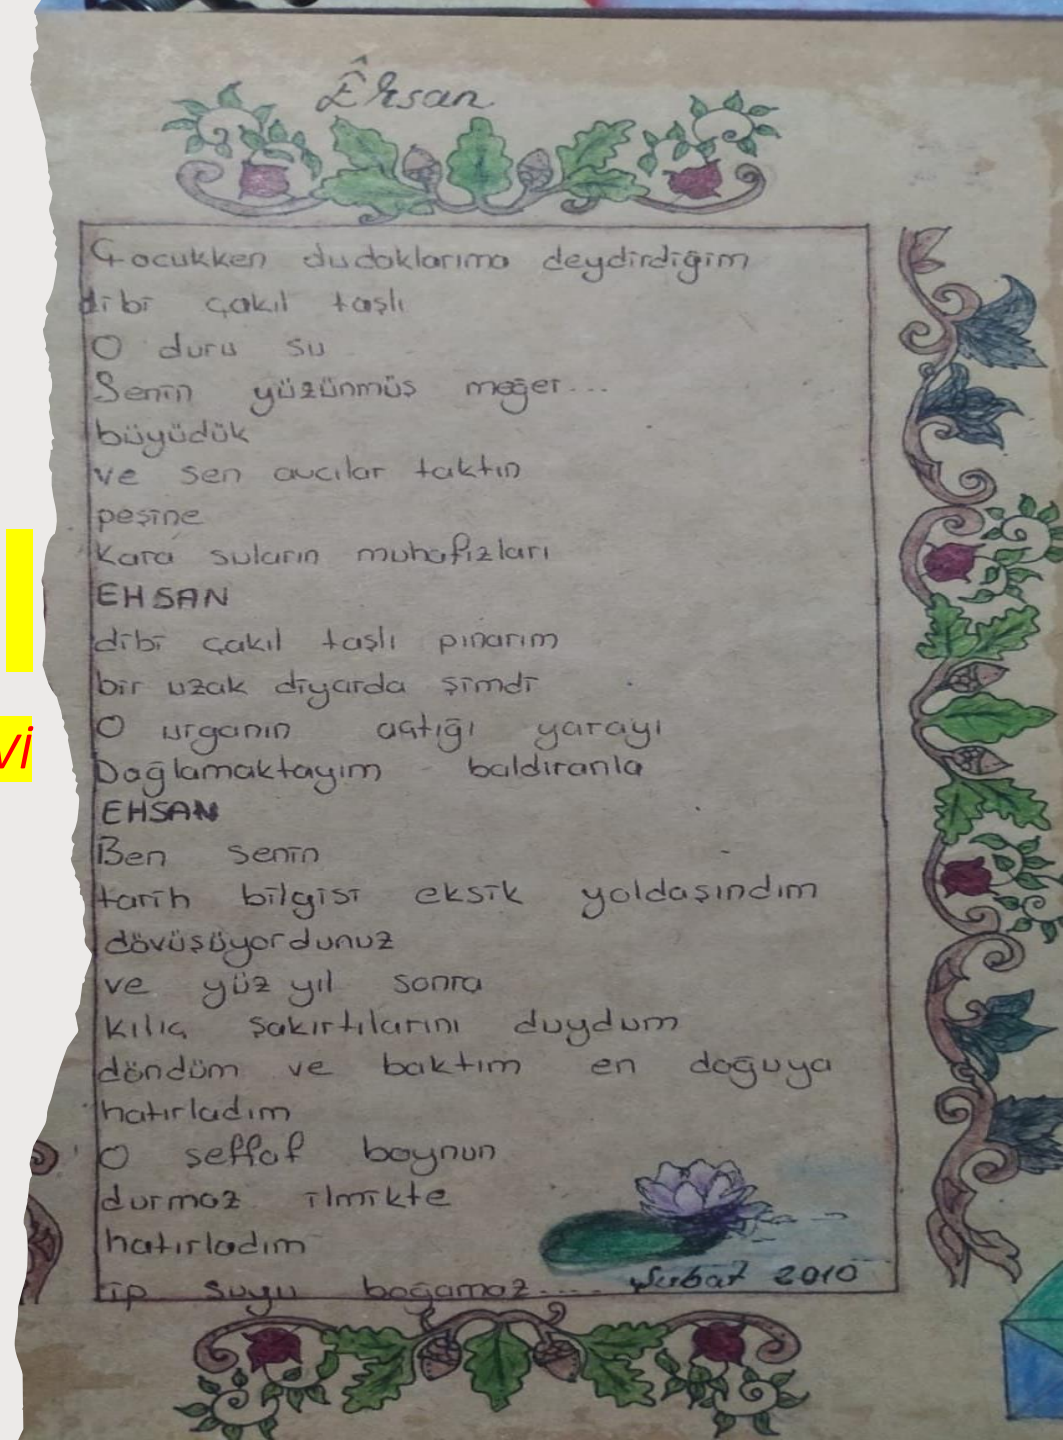 Êhsan
Çocukken dudaklarıma deydirdiğim
dibi çakıl taşlı
O duru su
Senin yüzünmüş meğer...
büyüdük
ve sen avcılar taktın
peşine
kara suların muhafızları
EHSAN
dibi çakıl taşlı pınarım
bir uzak diyarda şimdi
O urganın açtığı yarayı
Dağlamaktayım baldıranla
EHSAN
Ben senin
tarih bilgisi eksik yoldaşındım
dövüşüyordunuz
ve yüz yıl sonra
kılıç şakırtılarını duydum
döndüm ve baktım en doğuya
hatırladım
O şeffaf boynun
durmaz ilmikte
hatırladım
ip suyu boğamaz....
Şubat 2010
vi